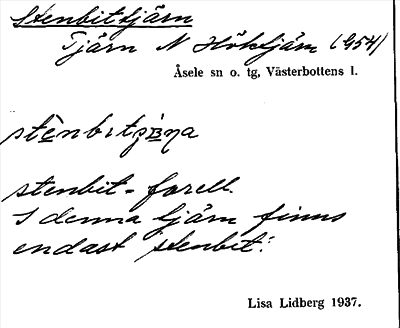 Stenbittjärn
Tjärn N Höktjärn (954)
Åsele sn o. tg, Västerbottens l.
stenbit-forell.
I denna tjärn finns
endast "stenbit".
Lisa Lidberg 1937.